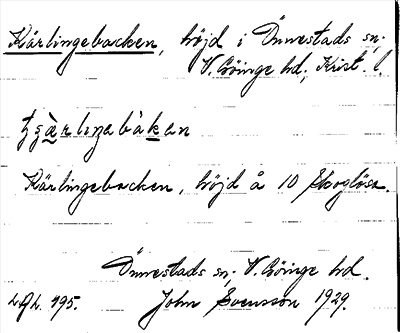 Kärlingebacken, höjd i Önnestads sn.
V. Göinge hd., Krist. l.
Kärlingebacken, höjd å 10 Skoglösa.
Önnestads sn, V. Göinge hd.
John Svensson 1929.